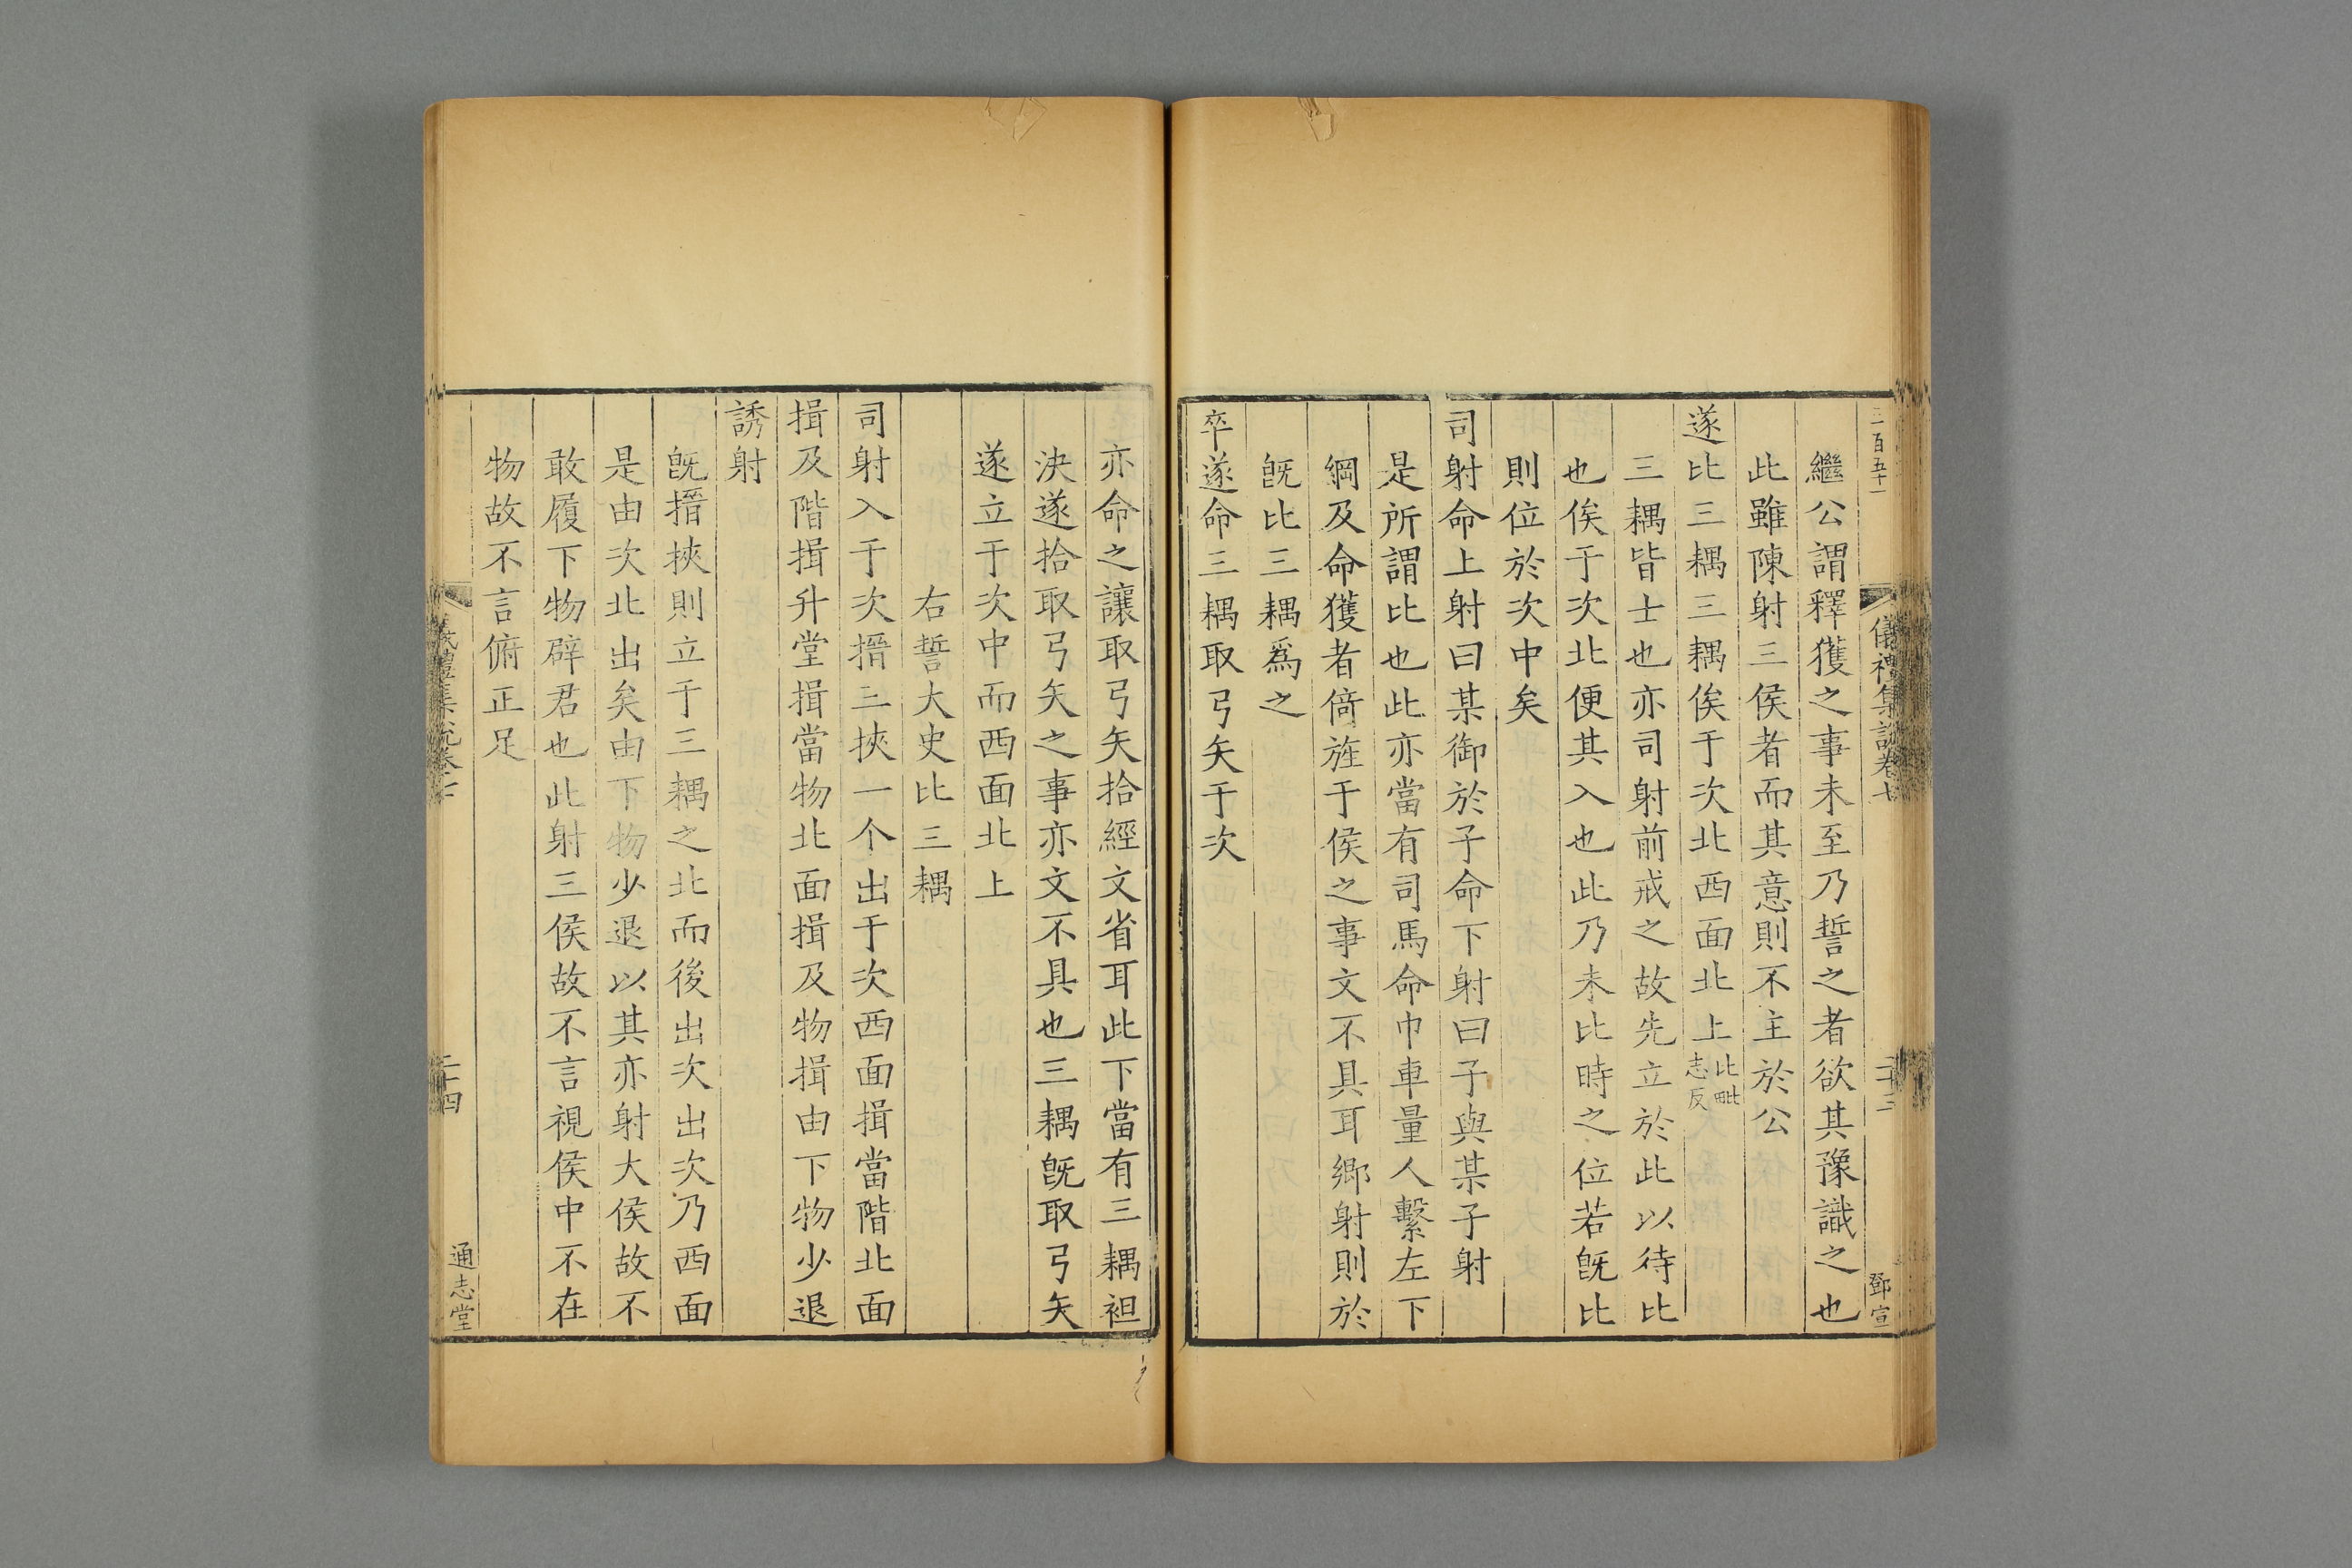 三百五十一
儀禮集說卷七
二十三
鄧宣
繼公謂釋獲之事未至乃誓之者欲其豫識之也
此雖陳射三侯者而其意則不主於公
遂比三耦三耦俟于次北西面北上比毗志反
三耦皆士也亦司射前戒之故先立於此以待比
也俟于次北便其入也此乃未比時之位若旣比
則位於次中矣
司射命上射曰某御於子命下射曰子與某子射
是所謂比也此亦當有司馬命巾車量人繫左下
綱及命獲者倚旌于侯之事文不具耳鄉射則於
旣比三耦爲之
卒遂命三耦取弓矢于次
亦命之讓取弓矢拾經文省耳此下當有三耦袒
決遂拾取弓矢之事亦文不具也三耦旣取弓矢
遂立于次中而西面北上
右誓大史比三耦
司射入于次搢三挾一个出于次西面揖當階北面
揖及階揖升堂揖當物北面揖及物揖由下物少退
誘射
旣搢挾則立于三耦之北而後出次出次乃西面
是由次北出矣由下物少退以其亦射大侯故不
敢履下物辟君也此射三侯故不言視侯中不在
物故不言俯正足
儀禮集說卷七
二十四
通志堂